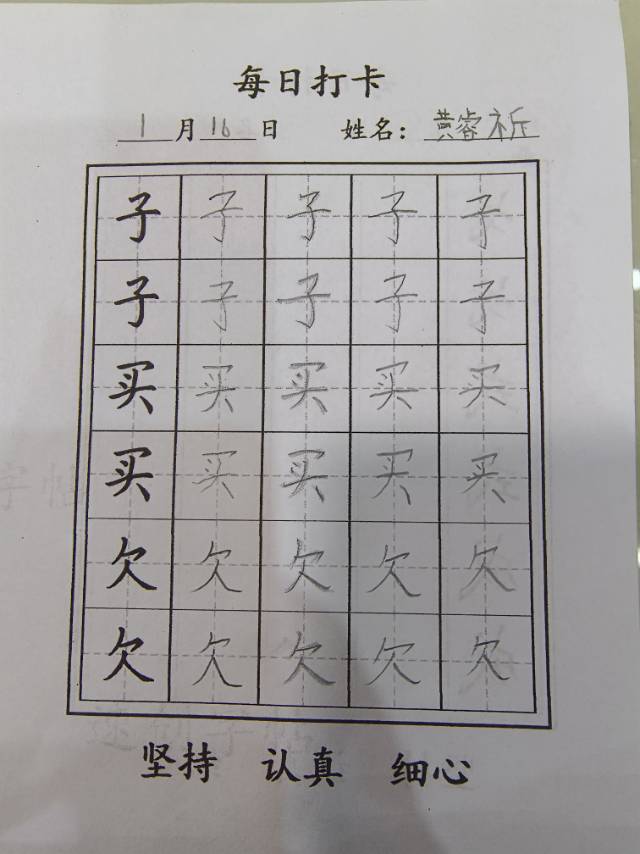 每日打卡
1月16日 姓名：黄睿祈
子子子子子
子子子子子
买买买买买
买买买买买
欠欠欠欠欠
欠欠欠欠欠
坚持 认真 细心